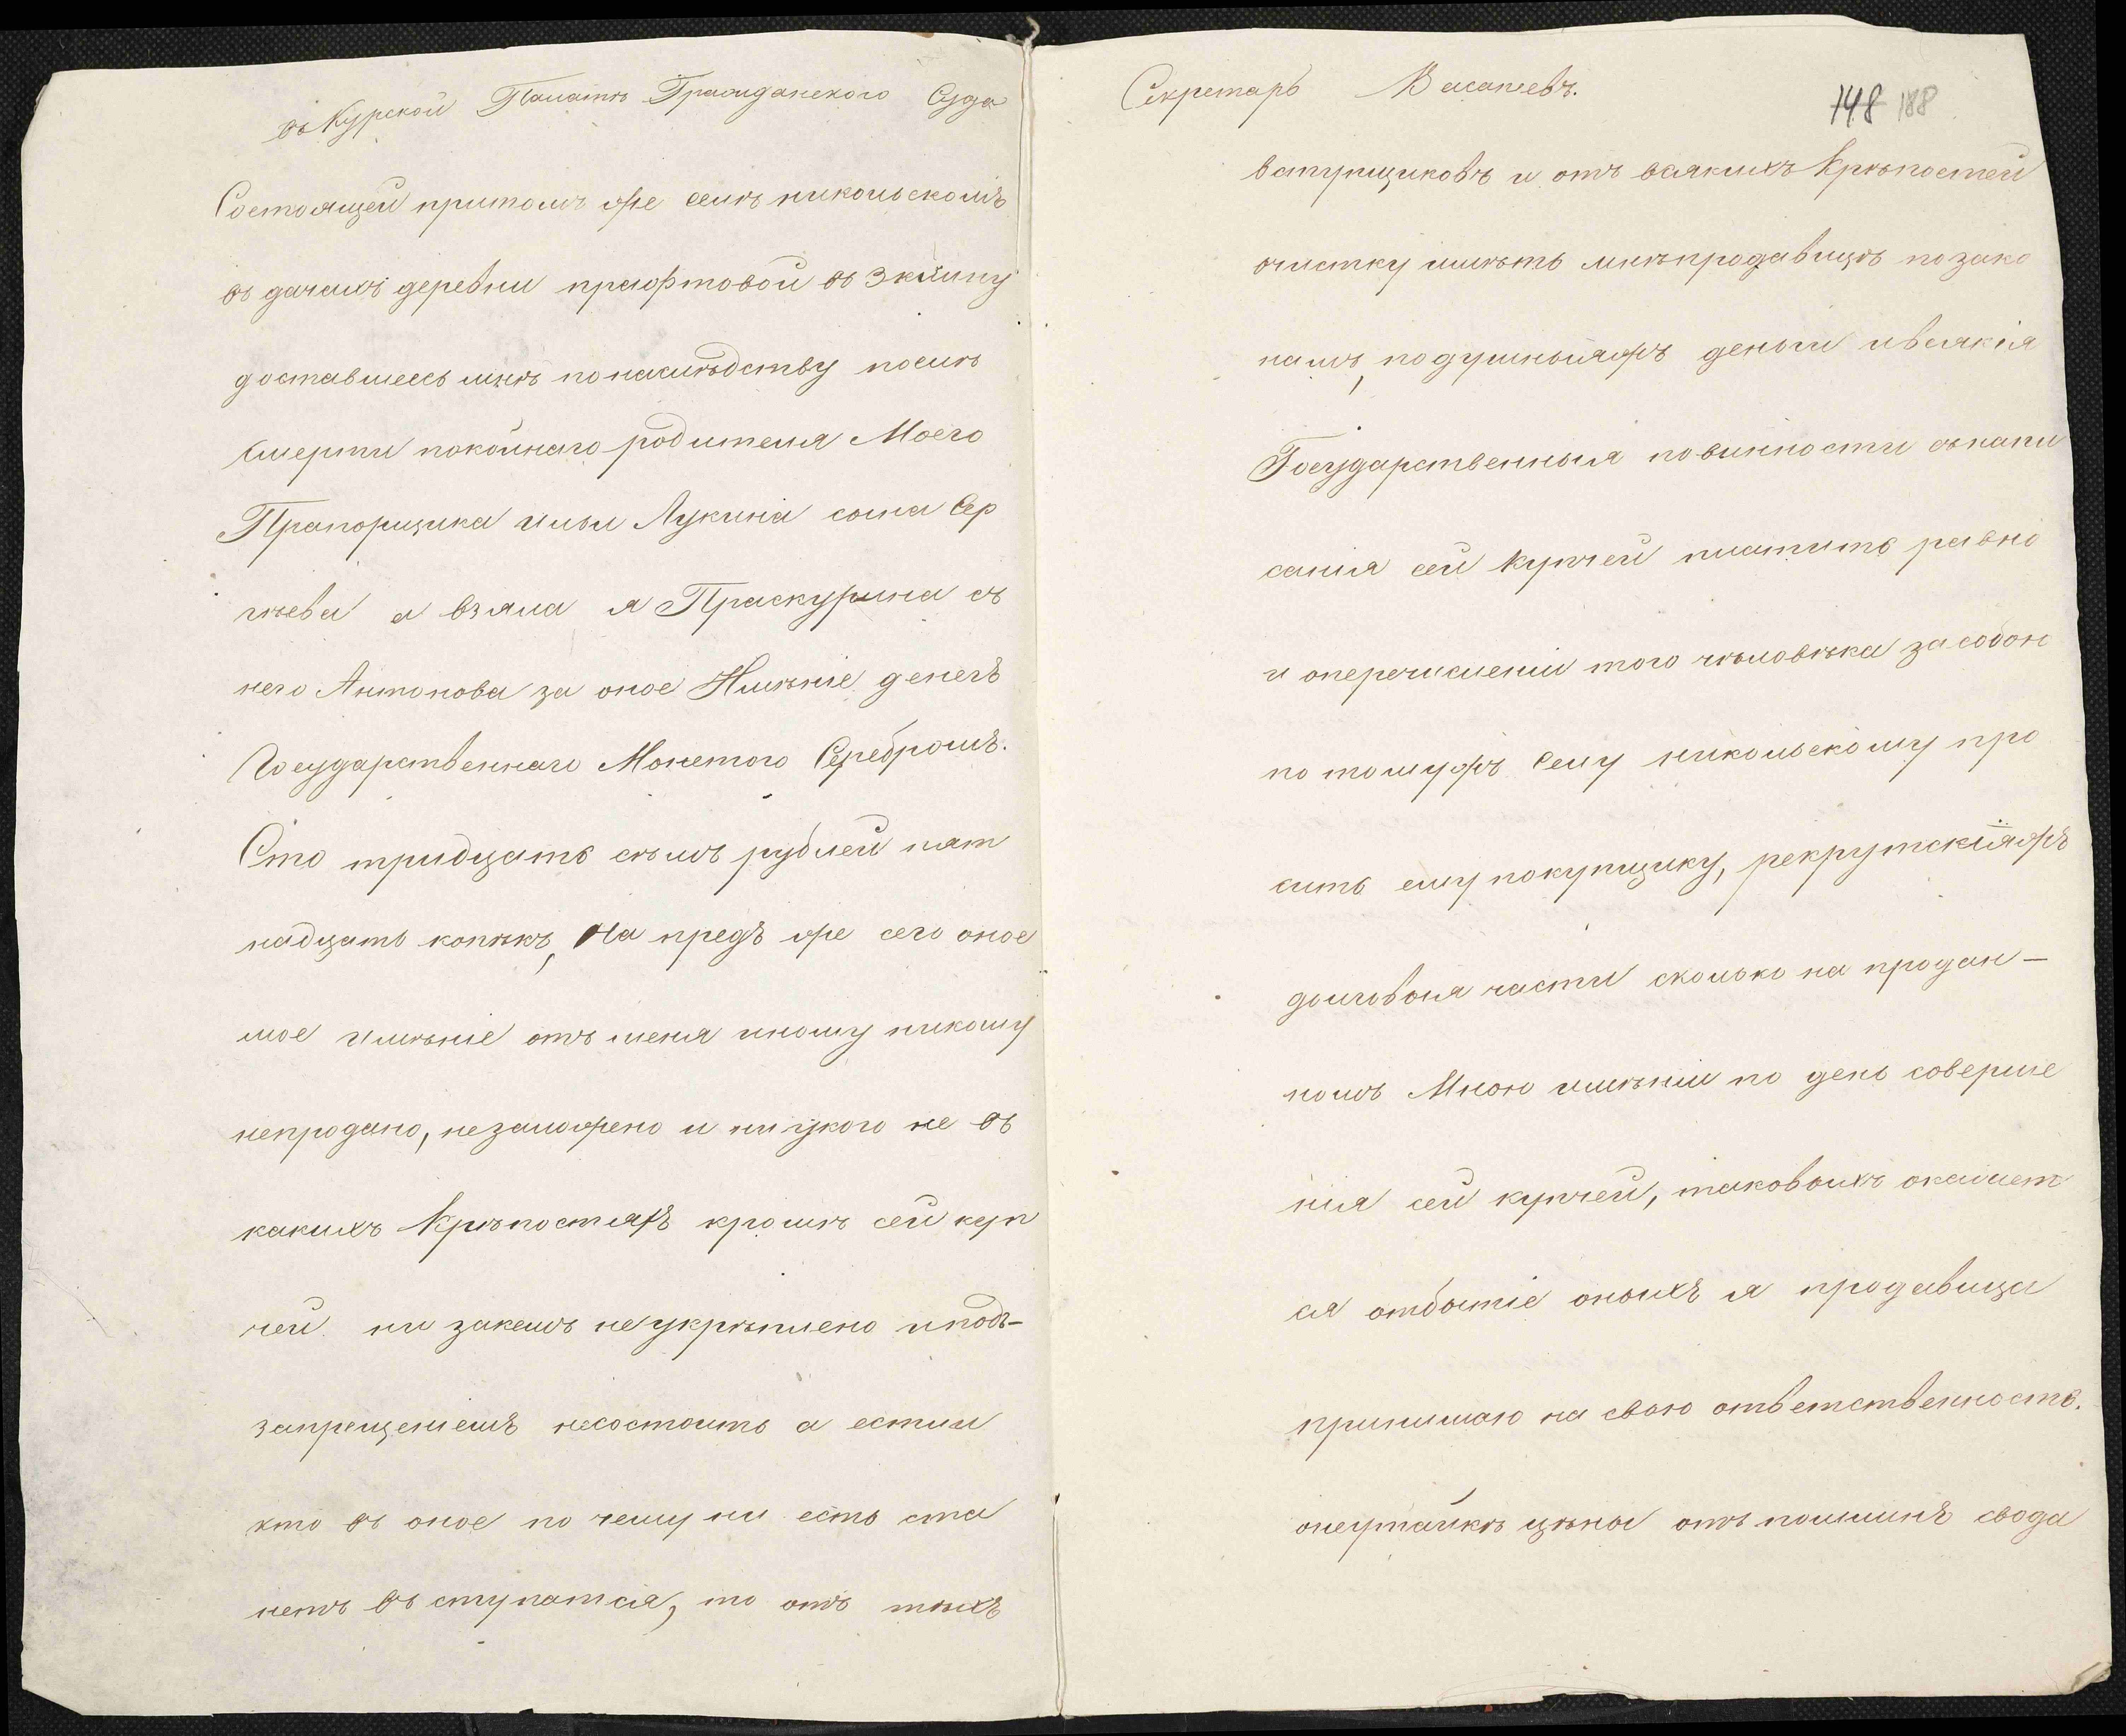 въ Курской Палатѣ Гражданскаго Суда
Состоящей притомъ же селѣ никольскомъ
въ дачахъ деревни въ Экклину
доставшеесь мнѣ понаслѣдству послѣ
смерти покойнаго родителя Моего
Прапорщика ильи Лукина сына Сер
гѣева а взяла я Праскурина съ
него Антонова за оное Имѣніе денегъ
Государственнаго Монетого Серебромъ.
Сто тридцать съмъ рублей пят
надцать копѣкъ, На предъ же сего оное
мое имѣніе отъ меня иному никому
непродано, незаложено и ни укого не въ
какихъ Крѣпостяхъ кромѣ сей куп
чей ни закемъ неукрѣплено иподъ-
запрещеніемъ несостоитъ а естли
кто въ оное по чему ни есть ста
нетъ въ ступатся, то отъ тѣхъ
Секретарь
148 188
вступщиковъ и отъ всякихъ Крѣпостей
очистку имѣть мнѣпродавицѣ позако
намъ, подушныяжъ деньги ивсякія
Государственныя повинности снапи
санія сей Купчей платить равно
и оперечисленіи того чѣловѣка засобою
по томужъ Селу никольскому про
сить ему покупщику, рекрутскіяжъ
долговыя части сколько на продан-
номъ Мною имѣніи по день соверше
нія сей купчей, таковыхъ окажет
ся отбытіе оныхъ я продавица
принимаю на свою ответственность.
онеутайкѣ цѣны отъ пошлинъ свода